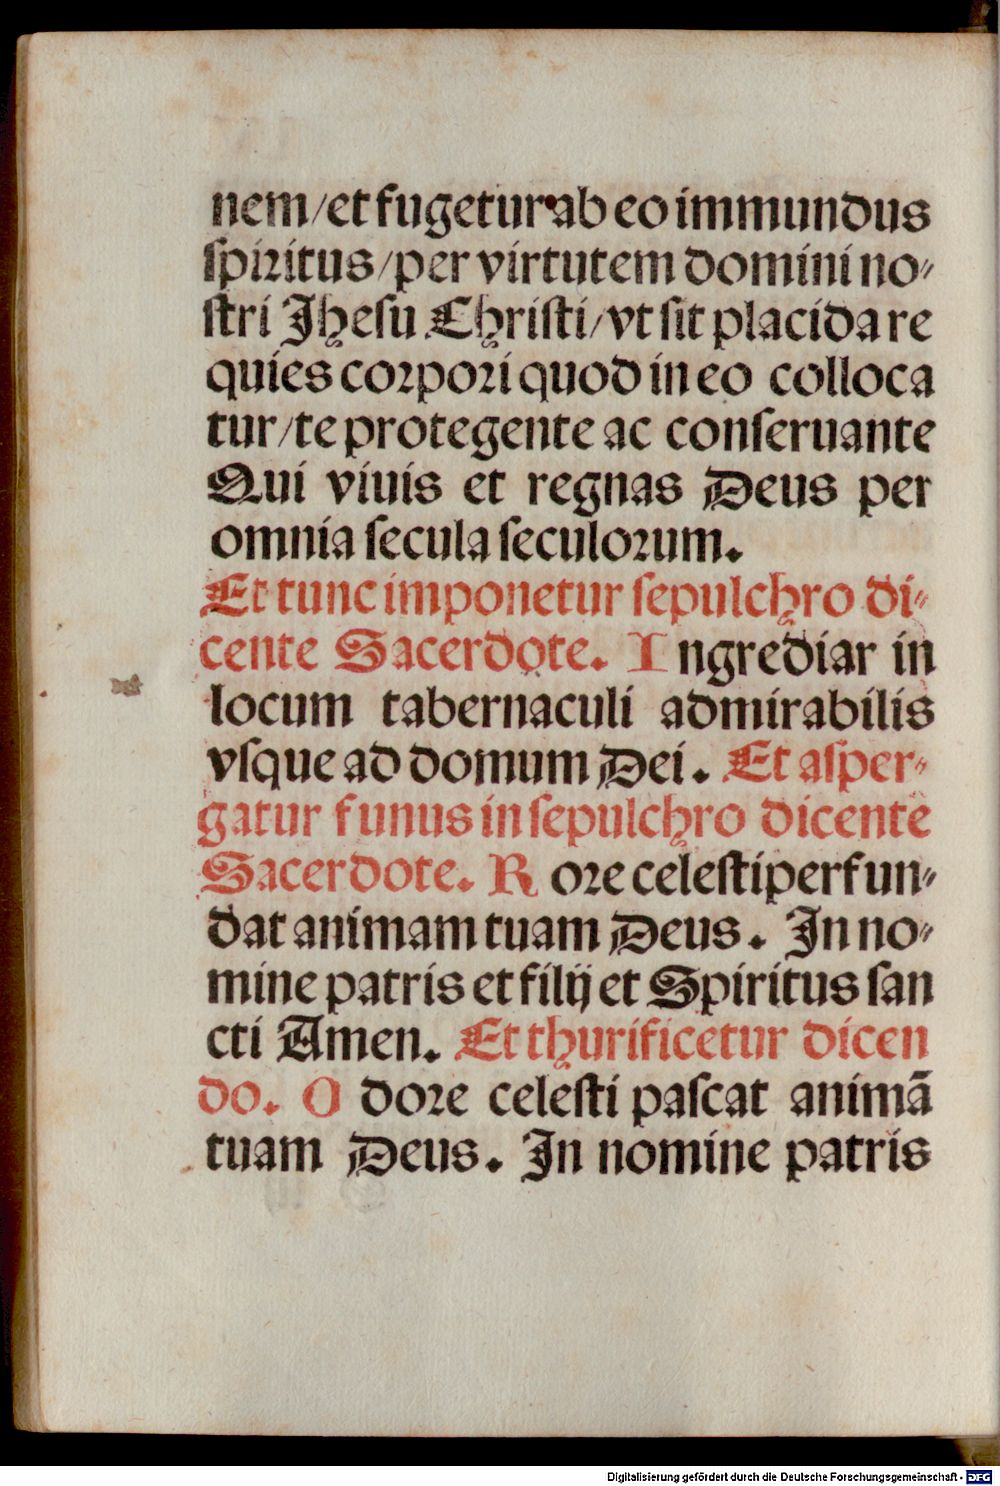 nem/et fugetur ab eo immundus
spiritus/per virtutem domini no-
stri Jhesu Christi/vt sit placida re
quies corpori quod in eo colloca
tur/te protegente ac conseruante
Qui viuis et regnas Deus per
omnia secula seculorum.
Et tunc imponetur sepulchro di-
cente Sacerdote. Ingrediar in
locum tabernaculi admirabilis
vsque ad domum Dei. Et asper-
gatur funus in sepulchro dicente
Sacerdote. Rore celesti perfun-
dat animam tuam Deus. In no-
mine patris et filij et Spiritus san
cti Amen. Et thurificetur dicen
do. Odore celesti pascat animā
tuam Deus. In nomine patris
Digitalisierung gefördert durch die Deutsche Forschungsgemeinschaft - DFG